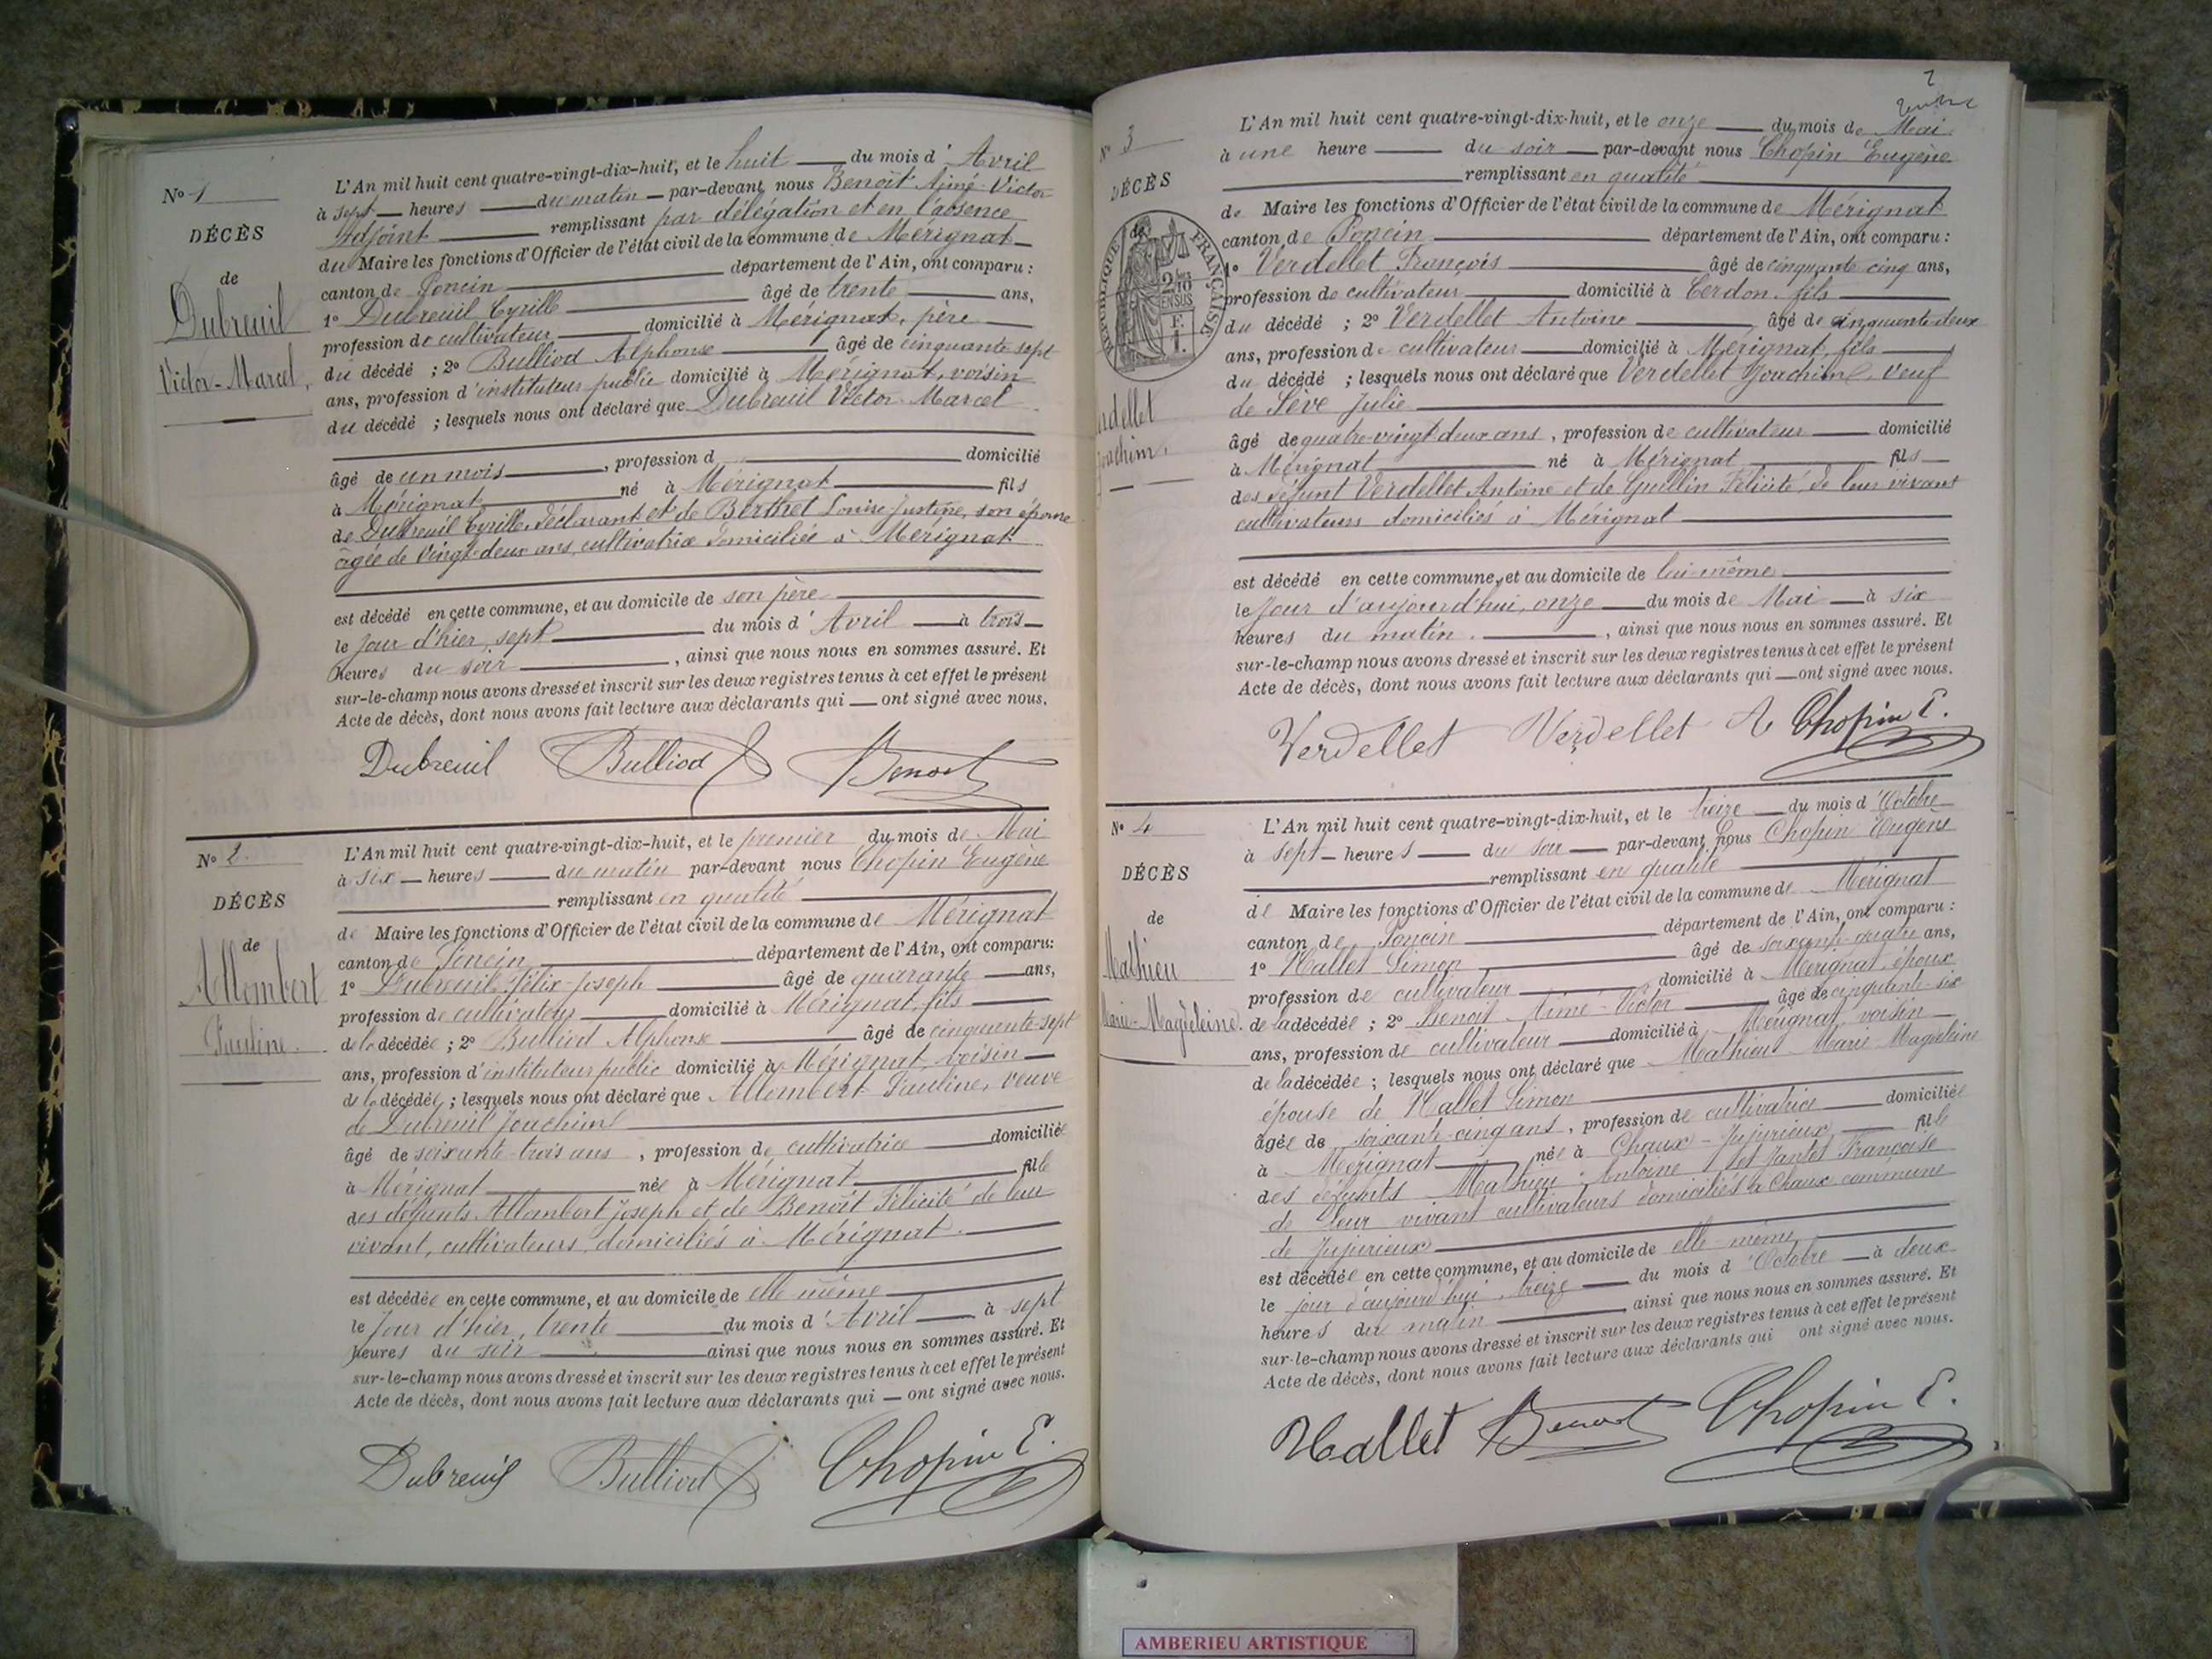 No 1
DÉCÈS
de
Dubreuil
Victor-Marcel,
L'An mil huit cent quatre-vingt-dix-huit, et le huit du mois d'Avril
à sept heures du matin par-devant nous Benoit Aimé-Victor
Adjoint remplissant par délégation et en l'absence
du Maire les fonctions d'Officier de l'état civil de la commune de Mérignat
canton de Poncin département de l'Ain, ont comparu :
1o Dubreuil Cyrille âgé de trente ans,
profession de cultivateur domicilié à Mérignat, père
du décédé ; 2o Bulliod Alphonse âgé de cinquante-sept
ans, profession d'instituteur public domicilié à Mérignat, voisin
du décédé ; lesquels nous ont déclaré que Dubreuil Victor-Marcel
âgé de un mois, profession d domicilié
à Mérignat né à Mérignat fils
de Dubreuil Cyrille, déclarant et de Berthet Louise Justine, son épouse
âgée de vingt-deux ans, cultivatrice domiciliée à Mérignat
est décédé en cette commune, et au domicile de son père
le jour d'hier, sept du mois d'Avril à trois
heures du soir, ainsi que nous nous en sommes assuré. Et
sur-le-champ nous avons dressé et inscrit sur les deux registres tenus à cet effet le présent
Acte de décès, dont nous avons fait lecture aux déclarants qui ont signé avec nous.
Dubreuil Bulliod Benoit
No 2.
DÉCÈS
de
Allombert
Pauline.
L'An mil huit cent quatre-vingt-dix-huit, et le premier du mois de Mai
à six heures du matin par-devant nous Chopin Eugène
remplissant en qualité
de Maire les fonctions d'Officier de l'état civil de la commune de Mérignat
canton de Poncin département de l'Ain, ont comparu:
1o Dubreuil Félix-Joseph âgé de quarante ans,
profession de cultivateur domicilié à Mérignat, fils
de la décédée ; 2o Bulliod Alphonse âgé de cinquante-sept
ans, profession d'instituteur public domicilié à Mérignat, voisin
de la décédée ; lesquels nous ont déclaré que Allombert Pauline, veuve
de Dubreuil Joachim
âgé de soixante-trois ans, profession de cultivatrice domiciliée
à Mérignat née à Mérignat fille
des défunts Allombert Joseph et de Benoît Félicité de leur
vivant, cultivateurs domiciliés à Mérignat.
est décédée en cette commune, et au domicile de elle même
le jour d'hier, trente du mois d'Avril à sept
heures du soir ainsi que nous nous en sommes assuré. Et
sur-le-champ nous avons dressé et inscrit sur les deux registres tenus à cet effet le présent
Acte de décès, dont nous avons fait lecture aux déclarants qui ont signé avec nous.
Dubreuil Bulliod Chopin E.
2
No 3
DÉCÈS
de
RÉPUBLIQUE FRANÇAISE
2/10 EN SUS
F. 1.
Joachim.
L'An mil huit cent quatre-vingt-dix-huit, et le onze du mois de Mai
à une heure du soir par-devant nous Chopin Eugène
remplissant en qualité
de Maire les fonctions d'Officier de l'état civil de la commune de Mérignat
canton de Poncin département de l'Ain, ont comparu :
1o Verdellet François âgé de cinquante cinq ans,
profession de cultivateur domicilié à Cerdon, fils
du décédé ; 2o Verdellet Antoine âgé de cinquante-deux
ans, profession de cultivateur domicilié à Mérignat, fils
du décédé ; lesquels nous ont déclaré que Verdellet Joachim, veuf
de Sève Julie
âgé de quatre-vingt-deux ans, profession de cultivateur domicilié
à Mérignat né à Mérignat fils
des défunt Verdellet Antoine et de Guillin Félicité, de leur vivant
cultivateurs domiciliés à Mérignat
est décédé en cette commune, et au domicile de lui-même
le jour d'aujourd'hui, onze du mois de Mai à six
heures du matin., ainsi que nous nous en sommes assuré. Et
sur-le-champ nous avons dressé et inscrit sur les deux registres tenus à cet effet le présent
Acte de décès, dont nous avons fait lecture aux déclarants qui ont signé avec nous.
Verdellet Verdellet A Chopin E.
No 4
DÉCÈS
de
Mathieu
Marie-Magdeleine.
L'An mil huit cent quatre-vingt-dix-huit, et le treize du mois d'Octobre
à sept heures du soir par-devant nous Chopin Eugène
remplissant en qualité
de Maire les fonctions d'Officier de l'état civil de la commune de Mérignat
canton de Poncin département de l'Ain, ont comparu :
1o Hallet Simon âgé de soixante-quatre ans,
profession de cultivateur domicilié à Mérignat, époux
de la décédée ; 2o Benoit Aimé-Victor âgé de cinquante-six
ans, profession de cultivateur domicilié à Mérignat, voisin
de la décédée ; lesquels nous ont déclaré que Mathieu Marie Magdeleine
épouse de Hallet Simon
âgée de soixante-cinq ans, profession de cultivatrice domiciliée
à Mérignat née à Chaux-Jujurieux fille
des défunts Mathieu Antoine et Françoise
de leur vivant cultivateurs domiciliés à Chaux commune
de Jujurieux
est décédée en cette commune, et au domicile de elle-même
le jour d'aujourd'hui, treize du mois d'Octobre à deux
heures du matin ainsi que nous nous en sommes assuré. Et
sur-le-champ nous avons dressé et inscrit sur les deux registres tenus à cet effet le présent
Acte de décès, dont nous avons fait lecture aux déclarants qui ont signé avec nous.
Hallet Benoit Chopin E.
AMBERIEU ARTISTIQUE